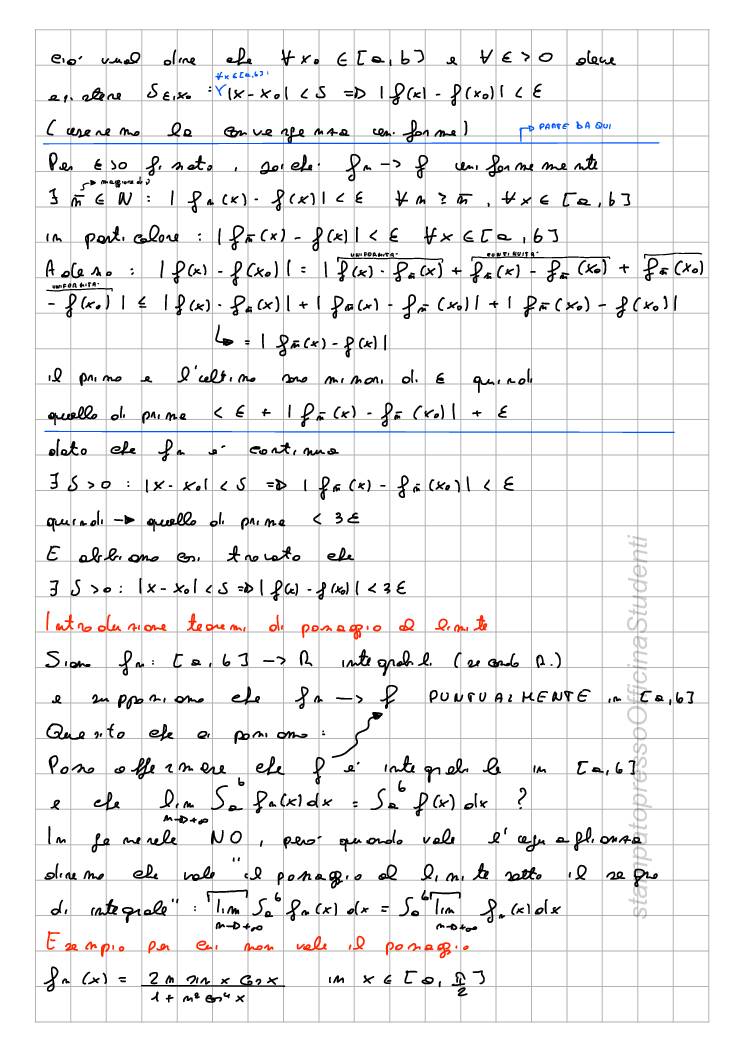 cio' vuol dire che ∀ x₀ ∈ [a, b] e ∀ ε > 0 deve
∀x∈[a,b]:
esistere δε,x₀ : ∀ |x - x₀| < δ => |f(x) - f(x₀)| < ε
(useremo la convergenza uniforme) → PARTE DA QUI
Per ε>0 fissato, poiche' fn -> f uniformemente
→ maggiore di ν
∃ n̄ ∈ N : | fn(x) - f(x)| < ε ∀ n ≥ n̄, ∀x ∈ [a, b]
in particolare : | fn̄(x) - f(x)| < ε ∀x ∈ [a, b]
UNIFORMITA' CONTINUITA'
Adesso : |f(x) - f(x₀)| = | f(x) - fn̄(x) + fn̄(x) - fn̄(x₀) + fn̄(x₀)
UNIFORMITA'
- f(x₀) | ≤ |f(x) - fn̄(x)| + | fn̄(x) - fn̄(x₀)| + | fn̄(x₀) - f(x₀)|
↳ = | fn̄(x) - f(x)|
il primo e l'ultimo sono minori di ε quindi
quello di prima < ε + | fn̄(x) - fn̄(x₀)| + ε
dato che fn e' continua
∃ δ > 0 : |x - x₀| < δ => | fn̄(x) - fn̄(x₀)| < ε
quindi -> quello di prima < 3ε
E abbiamo così trovato che
∃ δ > 0 : |x - x₀| < δ => | f(x) - f(x₀)| < 3ε
Introduzione teoremi di passaggio al limite
Siano fn : [a, b] -> R integrabili (secondo R.)
e supponiamo che fn -> f PUNTUALMENTE in [a, b]
Quesito che ci poniamo :
Posso affermare che f e' integrabile in [a, b]
e che lim n->+∞ ∫ₐᵇ fn(x) dx = ∫ₐᵇ f(x) dx ?
In generale NO, pero' quando vale l'eguaglianza
diremo che vale "il passaggio al limite sotto il segno
di integrale" : lim n->+∞ ∫ₐᵇ fn(x) dx = ∫ₐᵇ lim n->+∞ fn(x) dx
Esempio per cui non vale il passaggio
fn(x) = 2n sin x cos x / 1 + n² cos⁴ x in x ∈ [0, π/2]
stampatopressoOfficinaStudenti